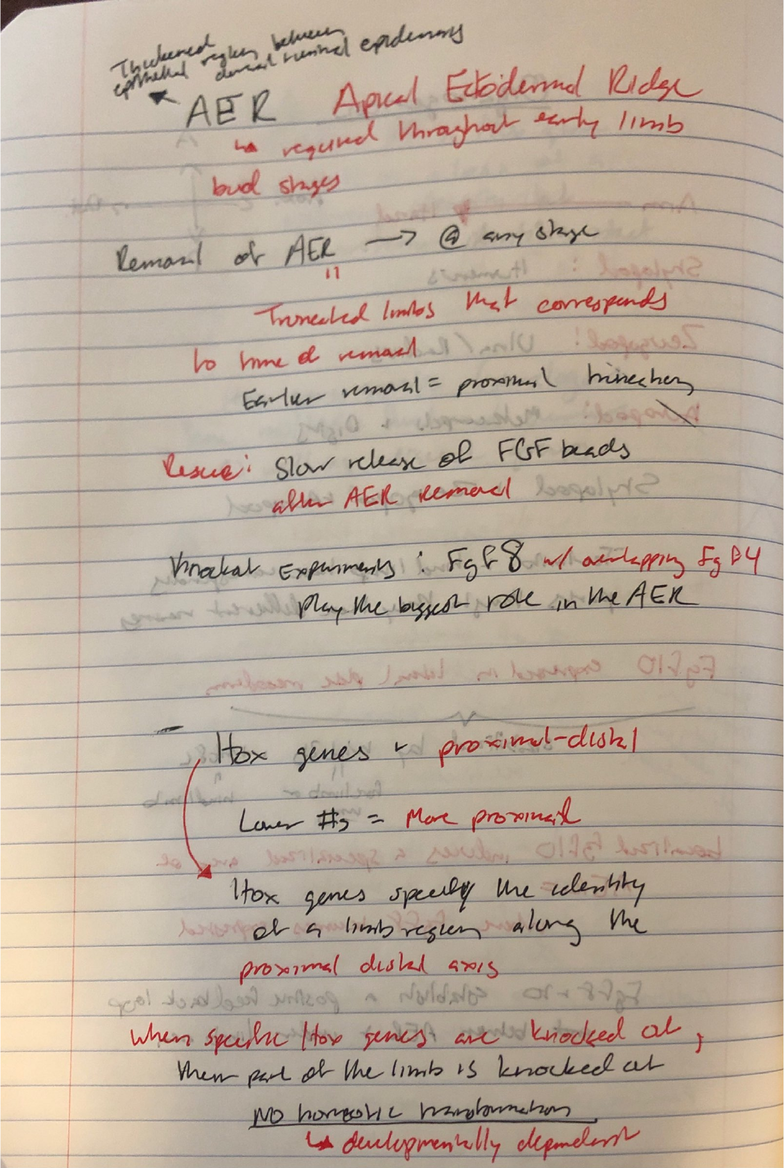 Thickened
epithelial region between
dorsal ventral epidermis
AER Apical Ectodermal Ridge
↳ required throughout early limb
bud stages
Removal of AER → @ any stage
Truncated limbs that corresponds
to time of removal
Earlier removal = proximal truncation
Rescue: Slow release of FGF beads
after AER removal
Knockout Experiments: FgF8 w/ overlapping FgF4
Play the biggest role in the AER
Hox genes proximal-distal
Lower #s = More proximal
Hox genes specify the identity
of a limb region along the
proximal distal axis
When specific Hox genes are knocked out,
then part of the limb is knocked out
No homeotic transformation
↳ developmentally dependent